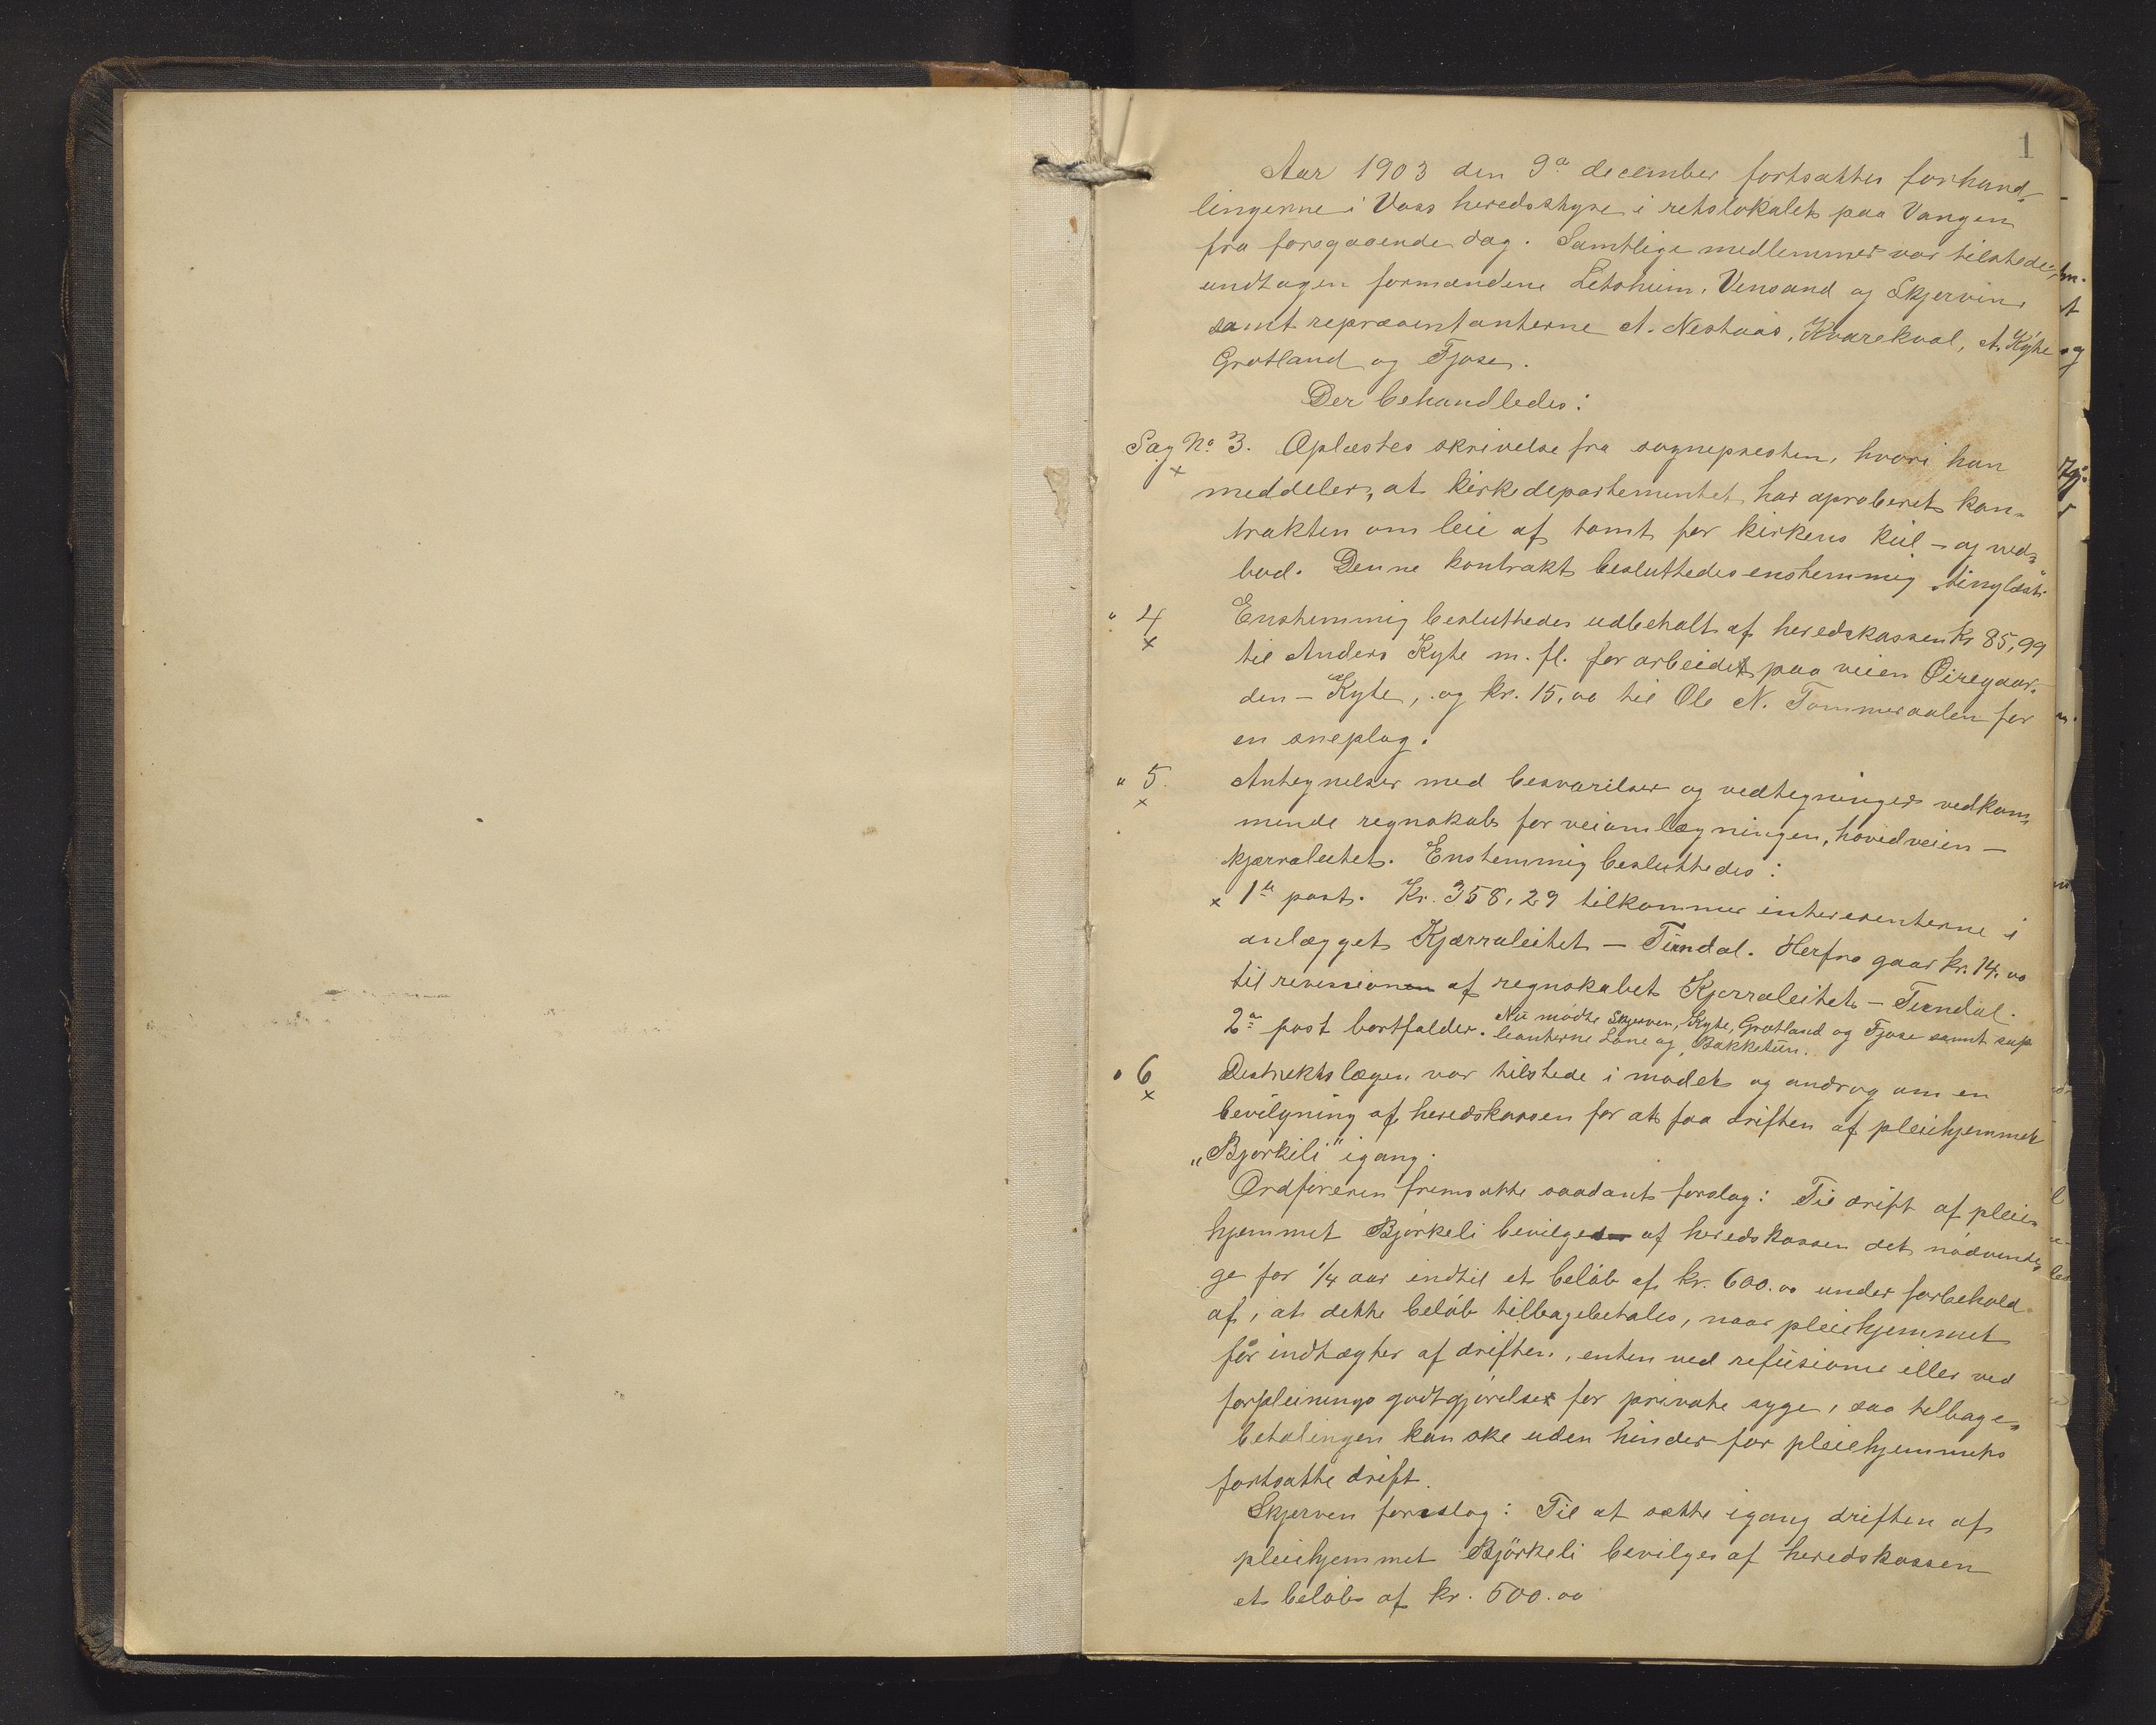 1
Aar 1903 den 9de december fortsattes forhand-
lingerne i Voss heredsstyre i retslokalet paa Vangen
fra foregaaende dag. Samtlige medlemmer var tilstede,
undtagen formændene Letsheim, Vensand og Skjerven,
samt repræsentanterne A. Nestaas, Kvarekval, A. Kyte
Grotland og Fjose.
Der behandledes:
Sag No 3. Oplæstes skrivelse fra sognepresten, hvori han
x
meddeler, at kirkedepartementet har aproberet kon-
trakten om leie af tomt for kirkens kul- og ved-
bod. Denne kontrakt besluttedes enstemmig tinglæst.
" 4 Enstemmig besluttedes udbetalt af heredskassen kr 85,99
x
til Anders Kyte m. fl. for arbeidet paa veien Øiregaar-
den - Kyte, og kr. 15,00 til Ole N. Tømmeraalen for
en sneplog.
" 5. Antegnelser med besvarelser og vedtegninger vedkom-
x
mende regnskab for veiomlægningen, hovedveien -
kjærraleitet. Enstemmig besluttedes:
x 1ste post. Kr. 358,29 tilkommer interesenterne i
anlægget Kjærraleitet - Tirndal. Herfra gaar kr. 14.00
til revision af regnskabet Kjerraleitet - Tirndal.
2den post bortfalder. Nu mødte Skjerven, Kyte, Grotland og Fjose samt sup
leanterne Lone og Bakketun.
" 6 Distriktslægen var tilstede i mødet og androg om en
x
bevilgning af heredskassen for at faa driften af pleiehjemmet
„Bjørkeli" igang.
Ordføreren fremsatte saadant forslag: Til drift af pleie-
hjemmet Bjørkeli bevilges af heredskassen det nødvendi-
ge for 1/4 aar indtil et beløb af kr. 600.00 under forbehold
af, at dette beløb tilbagebetales, naar pleiehjemmet
får indtægter af driften, enten ved refusione eller ved
forpleinings godtgjørelser for private syge, saa tilbage-
betalingen kan ske uden hinder for pleiehjemmets
fortsatte drift.
Skjerven foreslog: Til at sætte igang driften af
pleiehjemmet Bjørkeli bevilges af heredskassen
et beløb af kr. 500.00